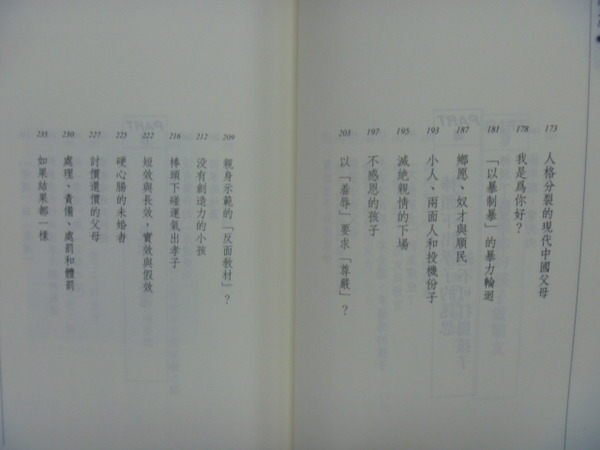 173 人格分裂的現代中國父母
178 我是為你好？
181 「以暴制暴」的暴力輪迴
187 鄉愿、奴才與順民
193 小人、兩面人和投機份子
195 滅絕親情的下場
197 不感恩的孩子
203 以「羞辱」要求「尊嚴」？
209 親身示範的「反面教材」？
212 沒有創造力的小孩
216 棒頭下碰運氣出孝子
222 短效與長效，實效與假效
225 硬心腸的未婚者
227 討價還價的父母
230 處理、責備、處罰和體罰
235 如果結果都一樣